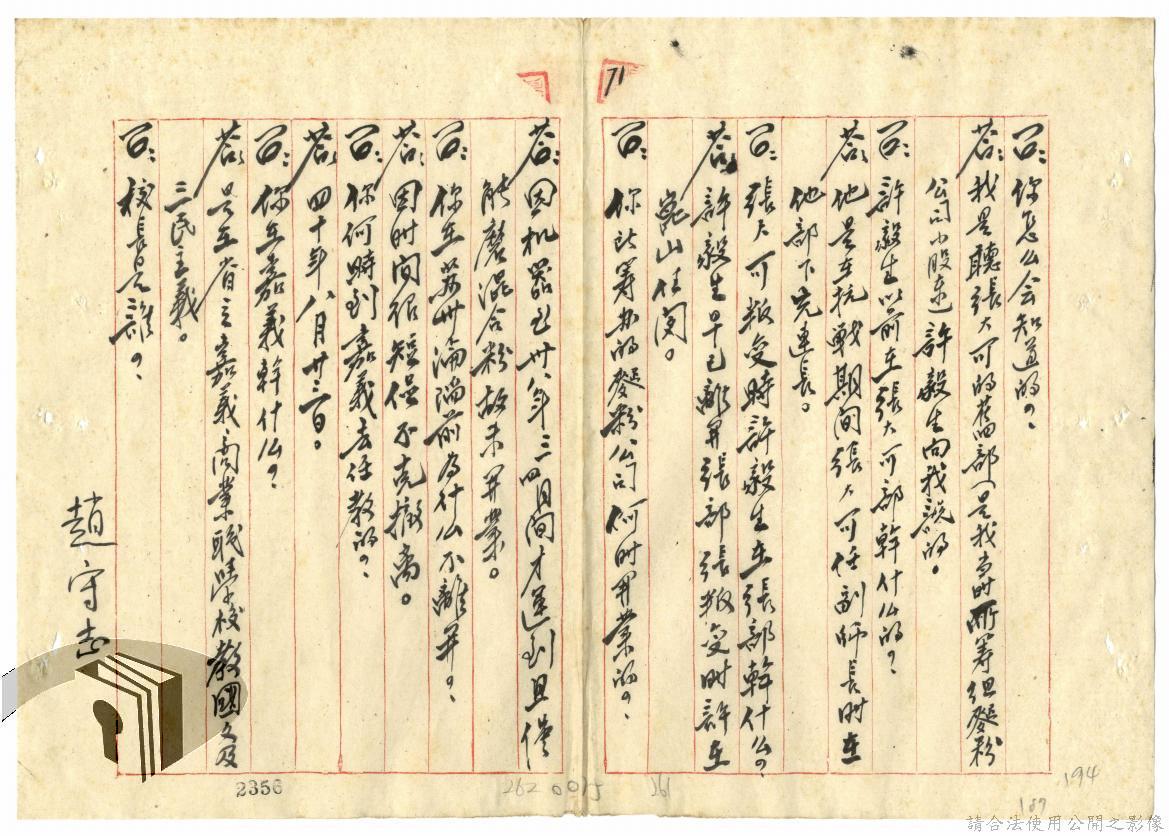 71
問：你怎么会知道的？
答：我是聽張大可的舊部(是我当时所筹组麵粉
公司小股東)許毅生向我說的。
問：許毅生以前在張大可部幹什么的？
答：他是在抗戰期间張大可任副师長时在
他部下充連長。
問：張大可叛变時許毅生在張部幹什么？
答：許毅生早已離开張部張叛变时許在
崑山任閒。
問：你所筹办的麵粉公司何时開業的？
答：因机器至卅八年三四月间才运到且僅
能磨混合粉故未開業。
問：你在蘇州淪陷前为什么不離开？
答：因时间很短促不克撤离。
問：你何時到嘉義去任教的？
答：四十年八月廿三日。
問：你在嘉義幹什么？
答：是在省立嘉義商業職學校教國文及
三民主義。
問：校長是誰？
趙守志
2356
262
0015
261
194
187
請合法使用公開之影像